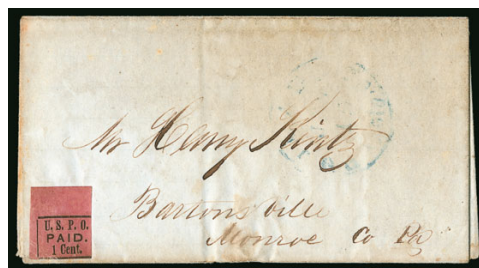 Mr Henry Kintz
Bartonsville
Monroe Co Pa
U. S. P. O.
PAID.
1 Cent.